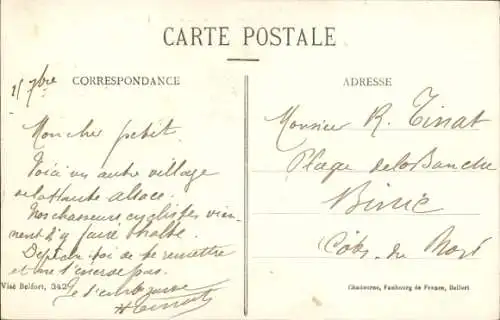 CARTE POSTALE
CORRESPONDANCE
ADRESSE
21 7bre
Mon cher petit.
Voici un autre village
de la Haute Alsace.
Nos chasseurs cyclistes vien-
nent d'y faire halte.
de se remettre
et ne t'énerve pas.
Je t'embrasse
Monsieur R. Tinat
Plage de la Banche
Binic
Côtes du Nord
Visé Belfort, 342
Chadourne, Faubourg de France, Belfort